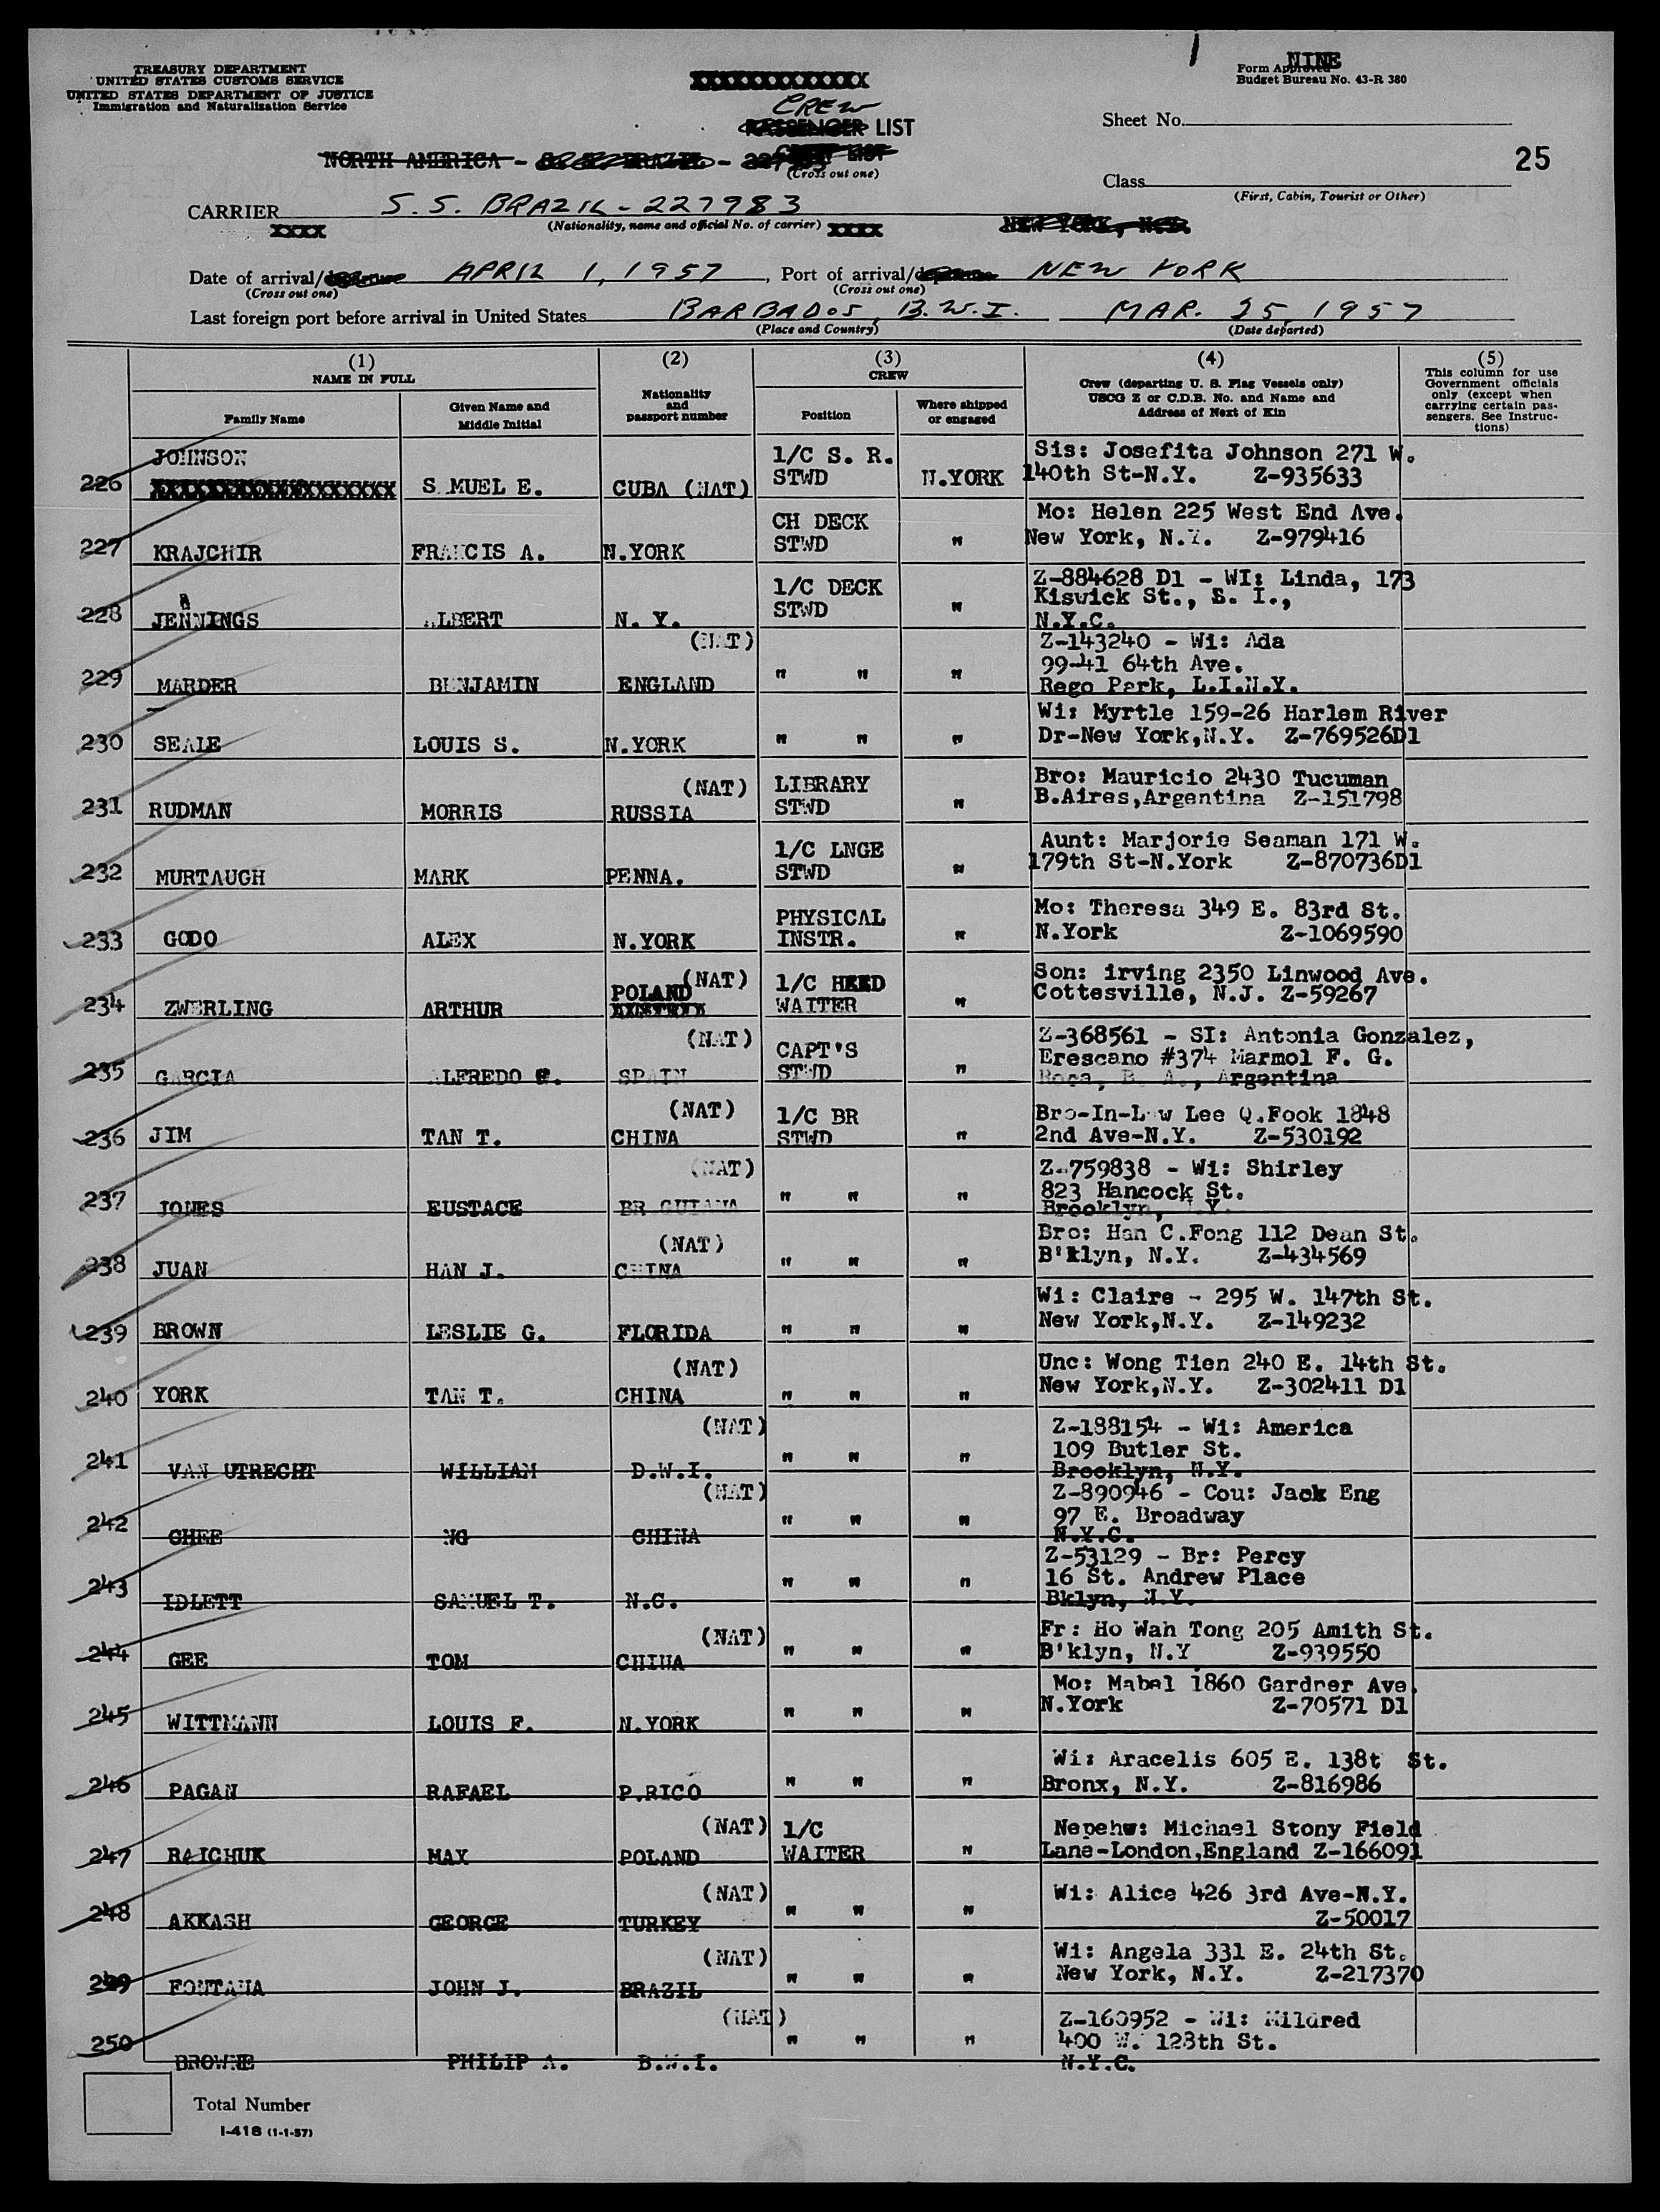 TREASURY DEPARTMENT
UNITED STATES CUSTOMS SERVICE
UNITED STATES DEPARTMENT OF JUSTICE
Immigration and Naturalization Service
NINE
Form Approved
Budget Bureau No. 43-R 380
XXXXXXXXXXXXX
CREW
PASSENGER LIST
Sheet No.
NORTH AMERICA - S. S. BRAZIL -
CREW LIST
(Cross out one)
25
Class
(First, Cabin, Tourist or Other)
CARRIER S. S. BRAZIL - 227983
(Nationality, name and official No. of carrier)
XXXX XXXX
NEW YORK, N.Y.
Date of arrival/departure APRIL 1, 1957, Port of arrival/departure NEW YORK
(Cross out one) (Cross out one)
Last foreign port before arrival in United States BARBADOS, B.W.I. MAR. 25, 1957
(Place and Country) (Date departed)
(1) NAME IN FULL
Family Name
Given Name and Middle Initial
(2)
Nationality and passport number
(3) CREW
Position
Where shipped or engaged
(4)
Crew (departing U. S. Flag Vessels only)
USCG Z or C.D.B. No. and Name and
Address of Next of Kin
(5)
This column for use
Government officials
only (except when
carrying certain pas-
sengers. See Instruc-
tions)
226 JOHNSON XXXXXXXXXXXXXXXXXXX S MUEL E. CUBA (NAT) 1/C S. R. STWD N.YORK Sis: Josefita Johnson 271 W.
140th St-N.Y. Z-935633
227 KRAJCHIR FRANCIS A. N.YORK CH DECK STWD " Mo: Helen 225 West End Ave.
New York, N.Y. Z-979416
228 JENNINGS ALBERT N. Y. 1/C DECK STWD " Z-884628 D1 - WI: Linda, 173
Kiswick St., S. I.,
N.Y.C.
229 MARDER BENJAMIN (NAT) ENGLAND " " " Z-143240 - Wi: Ada
99-41 64th Ave.
Rego Park, L.I.N.Y.
230 SEALE LOUIS S. N.YORK " " " Wi: Myrtle 159-26 Harlem River
Dr-New York,N.Y. Z-769526D1
231 RUDMAN MORRIS (NAT) RUSSIA LIBRARY STWD " Bro: Mauricio 2430 Tucuman
B.Aires,Argentina Z-151798
232 MURTAUGH MARK PENNA. 1/C LNGE STWD " Aunt: Marjorie Seaman 171 W.
179th St-N.York Z-870736D1
233 GODO ALEX N.YORK PHYSICAL INSTR. " Mo: Theresa 349 E. 83rd St.
N.York Z-1069590
234 ZWERLING ARTHUR (NAT) POLAND 1/C HEED WAITER " Son: irving 2350 Linwood Ave.
Cottesville, N.J. Z-59267
235 GARCIA ALFREDO (NAT) SPAIN CAPT'S STWD " Z-368561 - SI: Antonia Gonzalez,
Erescano #374 Marmol F. G.
Roca, B. A., Argentina
236 JIM TAN T. (NAT) CHINA 1/C BR STWD " Bro-In-L w Lee Q.Fook 1848
2nd Ave-N.Y. Z-530192
237 JONES EUSTACE (NAT) BR GUIANA " " " Z-759838 - Wi: Shirley
823 Hancock St.
Brooklyn, N.Y.
238 JUAN HAN J. (NAT) CHINA " " " Bro: Han C.Fong 112 Dean St.
B'klyn, N.Y. Z-434569
239 BROWN LESLIE G. FLORIDA " " " Wi: Claire - 295 W. 147th St.
New York,N.Y. Z-149232
240 YORK TAN T. (NAT) CHINA " " " Unc: Wong Tien 240 E. 14th St.
New York,N.Y. Z-302411 D1
241 VAN UTRECHT WILLIAM (NAT) D.W.I. " " " Z-188154 - Wi: America
109 Butler St.
Brooklyn, N.Y.
242 CHEE NG (NAT) CHINA " " " Z-890946 - Cou: Jack Eng
97 E. Broadway
N.Y.C.
243 IDLETT SAMUEL T. N.C. " " " Z-53129 - Br: Percy
16 St. Andrew Place
Bklyn, N.Y.
244 GEE TOM (NAT) CHINA " " " Fr: Ho Wah Tong 205 Amith St.
B'klyn, N.Y Z-939550
245 WITTMANN LOUIS F. N.YORK " " " Mo: Mabel 1860 Gardner Ave.
N.York Z-70571 D1
246 PAGAN RAFAEL P.RICO " " " Wi: Aracelis 605 E. 138t St.
Bronx, N.Y. Z-816986
247 RAICHUK MAX (NAT) POLAND 1/C WAITER " Nepehw: Michael Stony Field
Lane-London,England Z-166091
248 AKKASH GEORGE (NAT) TURKEY " " " Wi: Alice 426 3rd Ave-N.Y.
Z-50017
249 FONTANA JOHN J. (NAT) BRAZIL " " " Wi: Angela 331 E. 24th St.
New York, N.Y. Z-217370
250 BROWNE PHILIP A. (NAT) B.W.I. " " " Z-160952 - Wi: Mildred
400 W. 128th St.
N.Y.C.
Total Number
I-418 (1-1-57)